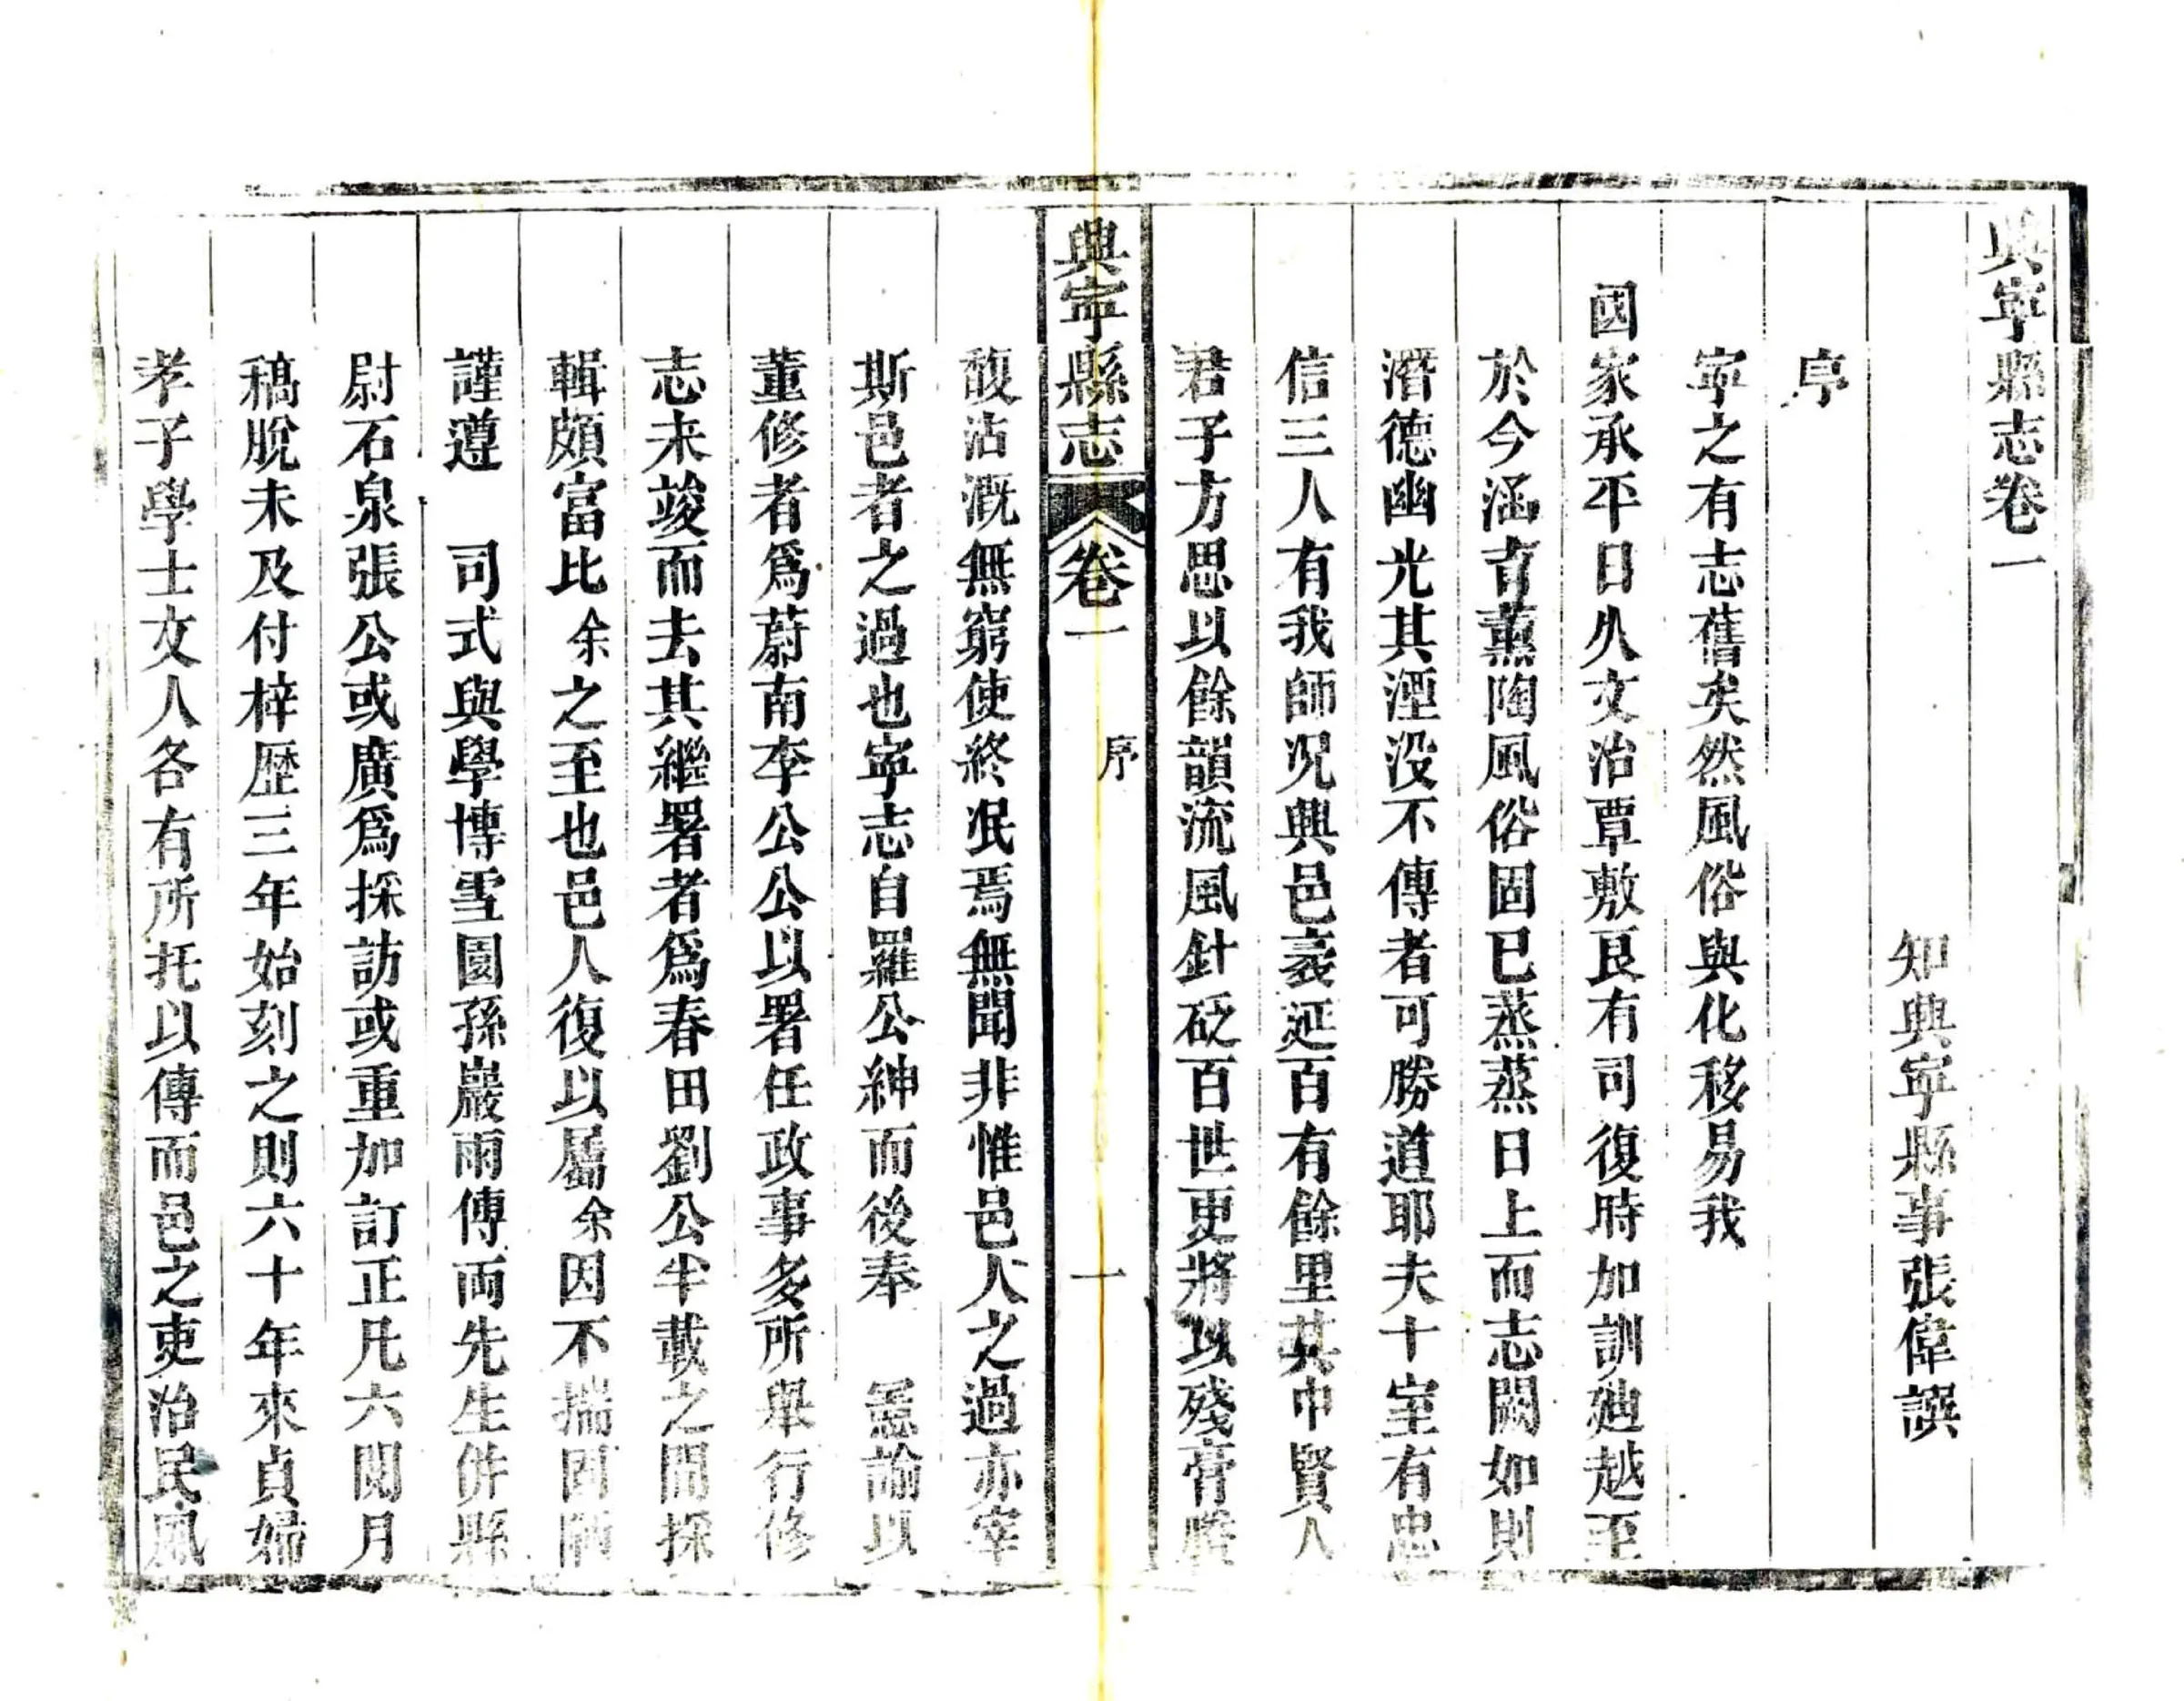 興寧縣志卷一
知興寧縣事張偉譔
序
寧之有志舊矣然風俗與化移易我
國家承平日久文治覃敷良有司復時加訓廸越至
於今涵育薰陶風俗固已蒸蒸日上而志闕如則
潛德幽光其湮没不傳者可勝道耶夫十室有忠
信三人有我師况興邑袤延百有餘里其中賢人
君子方思以餘韻流風針砭百世更將以殘膏賸
興寧縣志 卷一 序 一
馥沾溉無窮使終泯焉無聞非惟邑人之過亦宰
斯邑者之過也寧志自羅公紳而後奉 憲諭以
董修者爲蔚南李公公以署任政事多所舉行修
志未竣而去其繼署者爲春田劉公半載之間採
輯頗富比余之至也邑人復以屬余因不揣固陋
謹遵 司式與學博雪園孫巖雨傅両先生併縣
尉石泉張公或廣爲採訪或重加訂正凡六閱月
稿脫未及付梓歷三年始刻之則六十年來貞婦
孝子學士文人各有所托以傳而邑之吏治民風